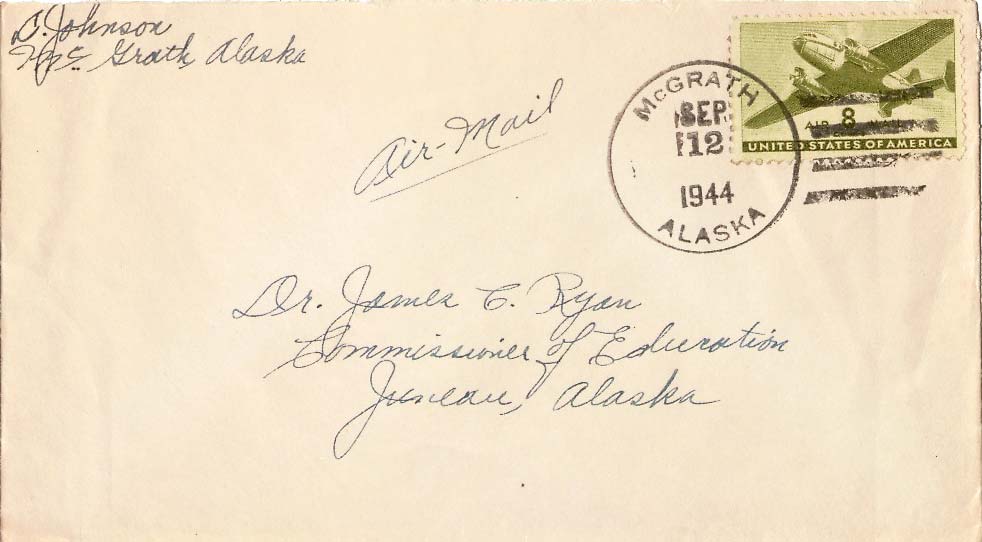 D. Johnson
Mc Grath, Alaska
Air-Mail
McGRATH
SEP
12
1944
ALASKA
AIR 8 MAIL
UNITED STATES OF AMERICA
Dr. James C. Ryan
Commissioner of Education
Juneau, Alaska